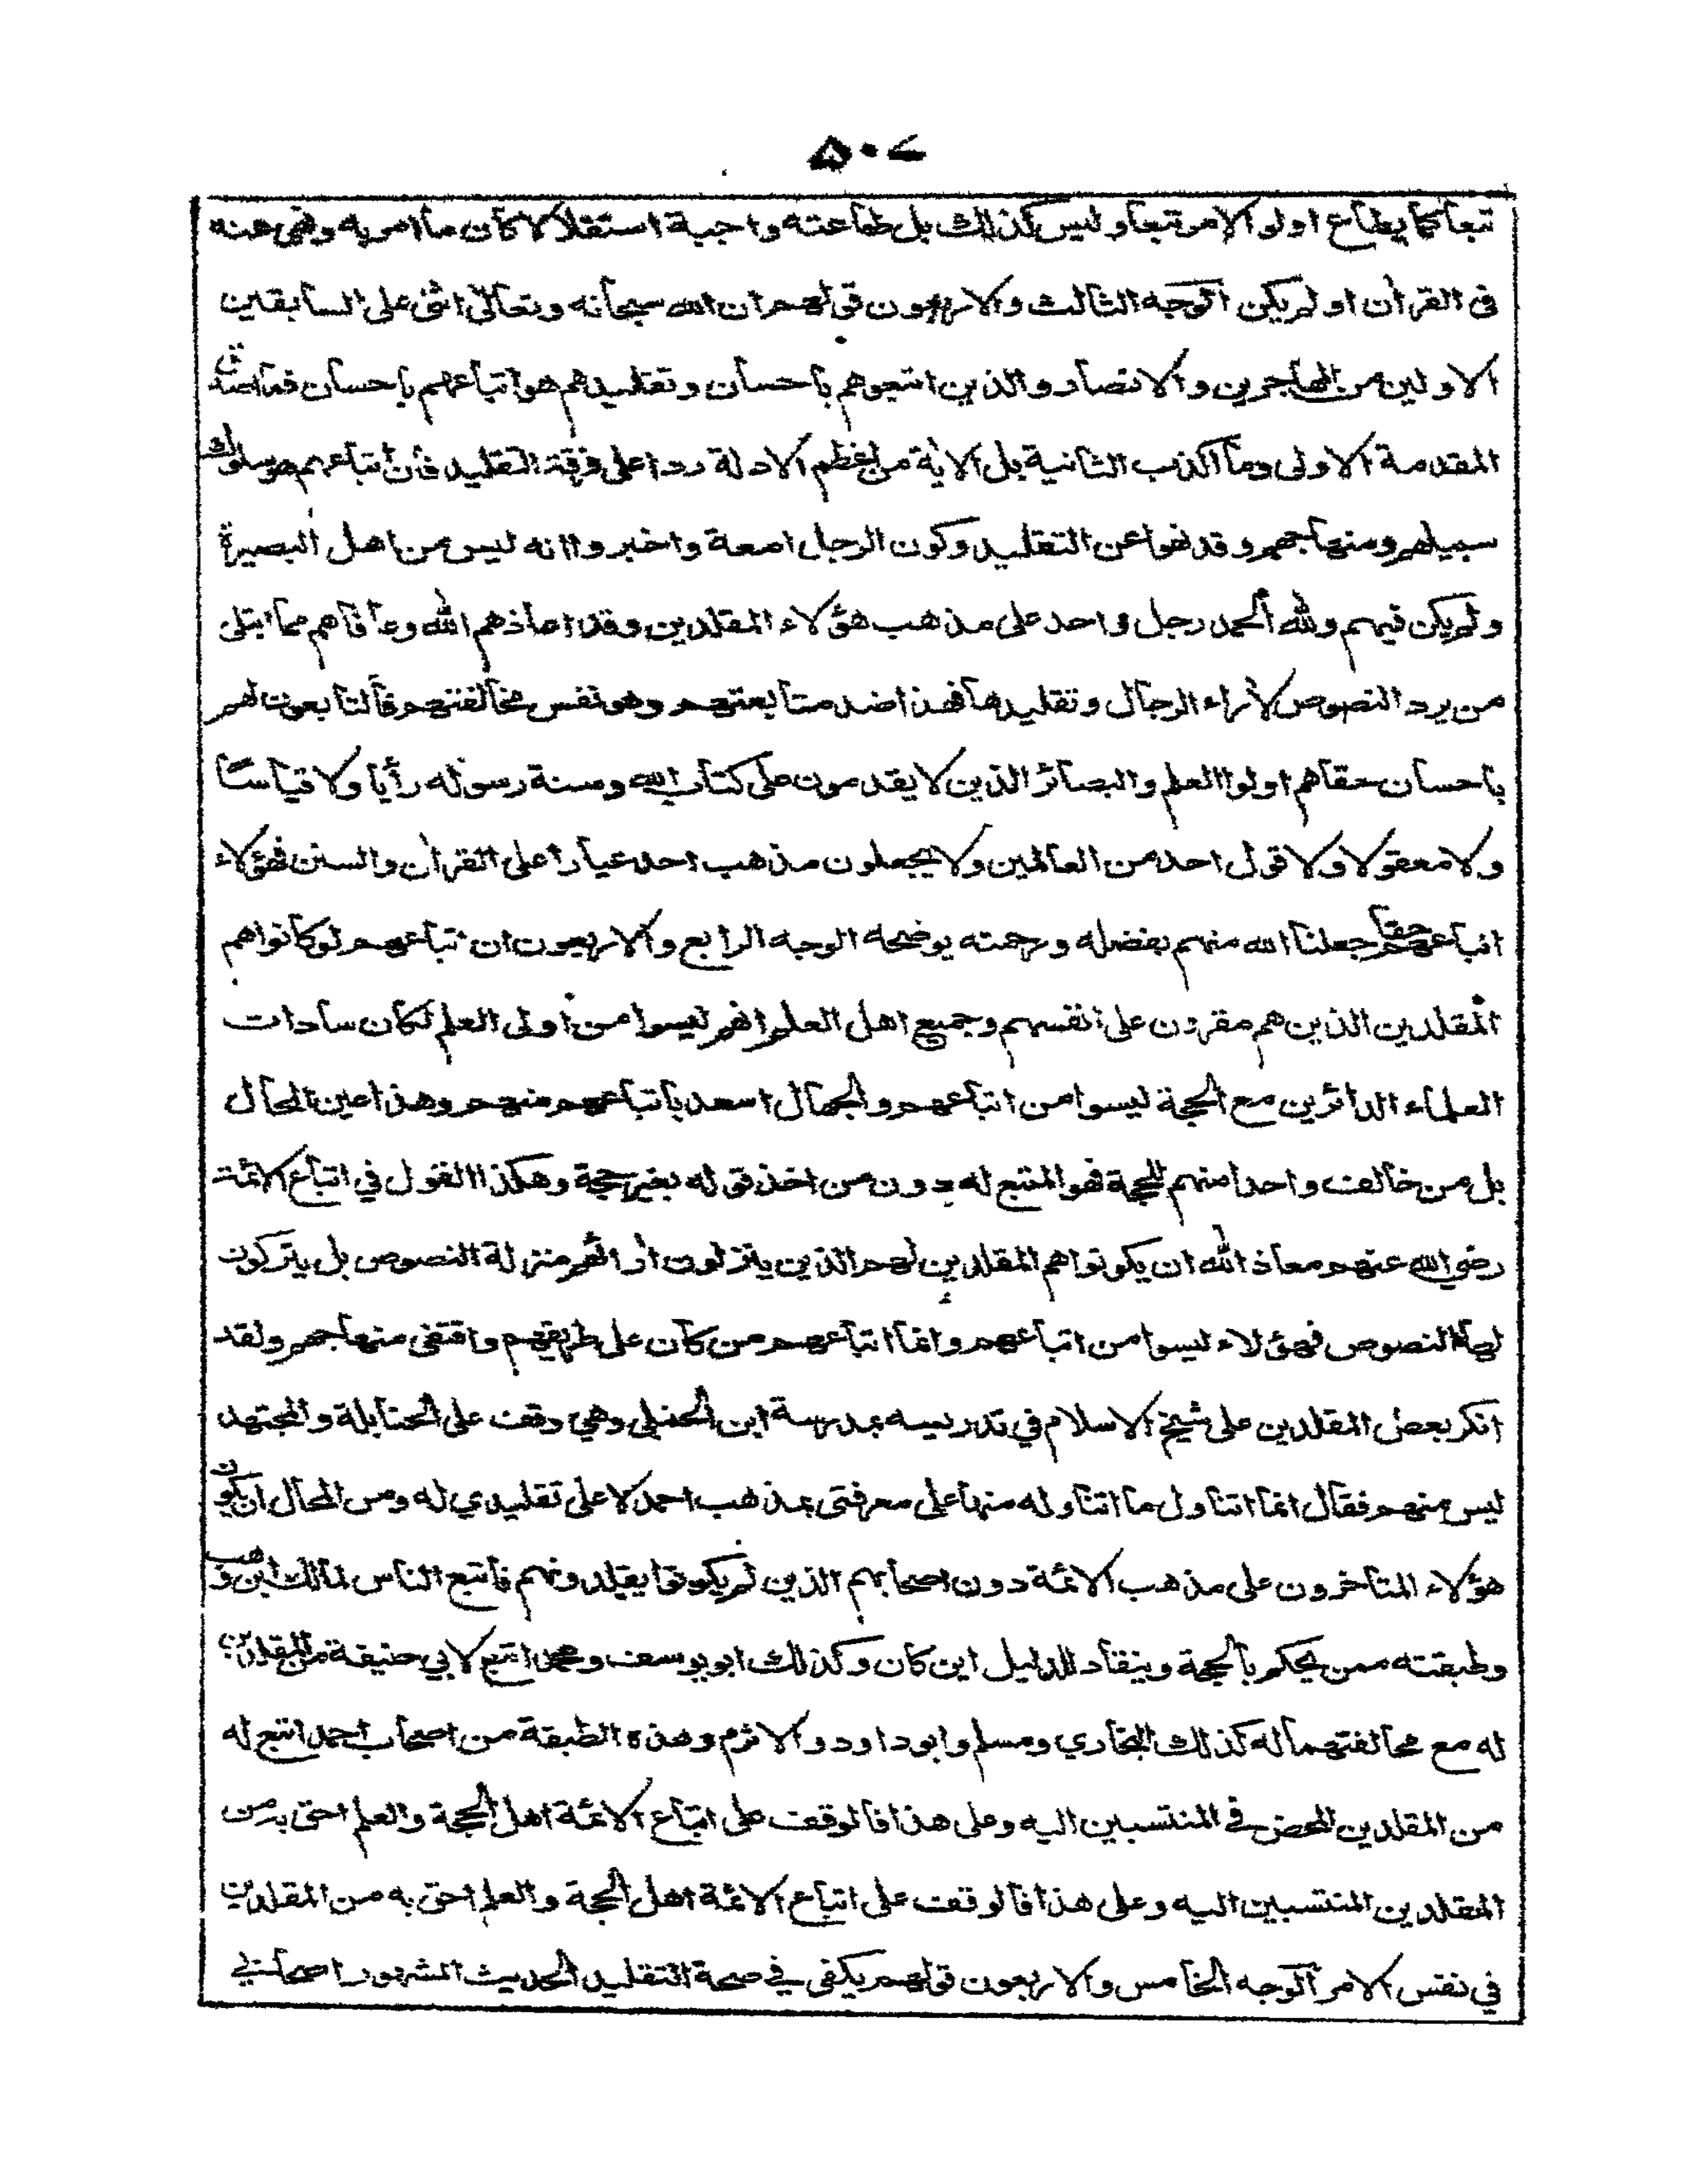 ٥٠٧
تبعا كما يطاع اولو الامر تبعا وليس كذلك بل طاعته واجبة استقلالا كان ما امر به ونهى عنه
فى القران او لم يكن الوجه الثالث والاربعون قولهم ان الله سبحانه وتعالى اثنى على السابقين
الاولين من المهاجرين والانصار والذين اتبعوهم باحسان وتقليدهم هو اتباعهم باحسان فما اصدق
المقدمة الاولى وما اكذب الثانية بل الاية من اعظم الادلة ردا على فرقة التقليد فان اتباعهم هو سلوك
سبيلهم ومنهاجهم وقد نهوا عن التقليد وكون الرجل امعة واخبروا انه ليس من اهل البصيرة
ولم يكن فيهم ولله الحمد رجل واحد على مذهب هؤلاء المقلدين وقد اعاذهم الله وعافاهم مما ابتلى
من يرد النصوص لأراء الرجال وتقليدها فهذا ضد متابعتهم وهو نفس مخالفتهم فالتابعون لهم
باحسان حقا هم اولوا العلم والبصائر الذين لا يقدمون على كتاب الله وسنة رسوله رأيا ولا قياسا
ولا معقولا ولا قول احد من العالمين ولا يجعلون مذهب احد عيارا على القرأن والسنن فهؤلاء
اتباعهم حقا جعلنا الله منهم بفضله ورحمته يوضحه الوجه الرابع والاربعون ان اتباعهم لو كانوا هم
المقلدين الذين هم مقرون على انفسهم وجميع اهل العلم انهم ليسوا من اولى العلم لكان سادات
العلماء الدائرين مع الحجة ليسوا من اتباعهم والجهال اسعد باتباعهم منهم وهذا عين المحال
بل من خالف واحدا منهم للحجة فهو المتبع له دون من اخذ قوله بغير حجة وهكذا القول في اتباع الائمة
رضي الله عنهم معاذ الله ان يكونوا هم المقلدين لهم الذين ينزلون أراءهم منزلة النصوص بل يتركون
لها النصوص فهؤلاء ليسوا من اتباعهم وانما اتباعهم من كان على طريقهم واقتفى منهاجهم ولقد
انكر بعض المقلدين على شيخ الاسلام في تدريسه بمدرسة ابن الحنبلي وهي وقف على الحنابلة والمجتهد
ليس منهم فقال انما اتناول ما اتناوله منها على معرفتى بمذهب احمد لا على تقليدي له ومن المحال ان يكون
هؤلاء المتاخرون على مذهب الائمة دون اصحابهم الذين لم يكونوا يقلدونهم فاتبع الناس لمالك ابن وهب
وطبقته ممن يحكم بالحجة وينقاد للدليل اين كان وكذلك ابو يوسف ومحمد اتبع لابي حنيفة من المقلدين
له مع مخالفتهما له كذلك البخاري ومسلم وابو داود والاثرم وهذه الطبقة من اصحاب احمد اتبع له
من المقلدين المحض في المنتسبين اليه وعلى هذا فالوقف على اتباع الائمة اهل الحجة والعلم احق به من
المقلدين المنتسبين اليه وعلى هذا فالوقف على اتباع الائمة اهل الحجة والعلم احق به من المقلدين
في نفس الامر الوجه الخامس والاربعون قولهم يكفى في صحة التقليد الحديث المشهور اصحابي